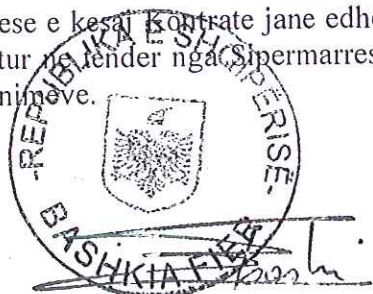 ese e kesaj Kontrate jane edhe
tur ne lender nga Sipermarres
nimeve.
-REPUBLIKA E SHQIPËRISE-
BASHKIA FIER